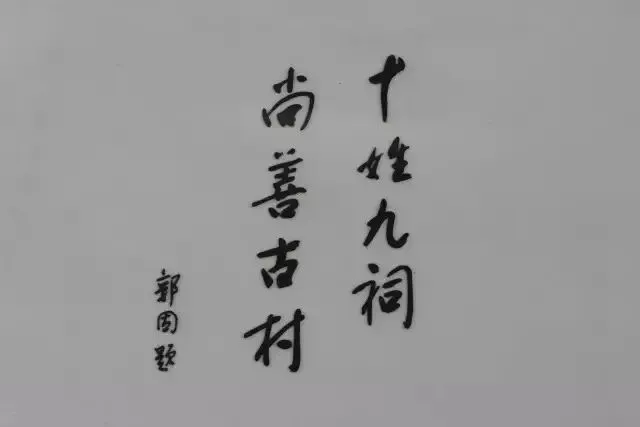 十姓九祠
尚善古村
郭因题